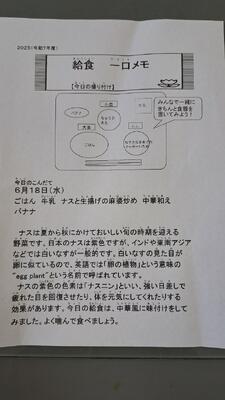 2025(令和7年度)
給食 一口メモ
【今日の盛り付け】
みんなで一緒に
きちんと食器を
置いてみよう!
バナナ
小皿
大皿
ごはん
今日のこんだて
6月18日(水)
ごはん 牛乳 ナスと生揚げの麻婆炒め 中華和え
バナナ
ナスは夏から秋にかけておいしい旬の時期を迎える
野菜です。日本のナスは紫色ですが、インドや東南アジア
などでは白いなすが一般的です。白いなすの見た目が
卵に似ているので、英語では「卵の植物」という意味の
"egg plant"という名前で呼ばれています。
ナスの紫色の色素は「ナスニン」といい、強い日差しで
疲れた目を回復させたり、体を元気にしてくれたりする
効果があります。今日の給食は、中華風に味付けをして
みました。よく噛んで食べましょう。